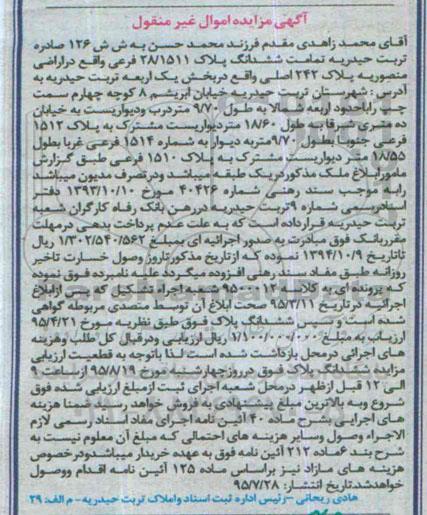 آگهی مزایده اموال غیر منقول
آقای محمد زاهدی مقدم فرزند محمد حسن به ش ش ۱۲۶ صادره
تربت حیدریه تمامت ششدانگ پلاک ۲۸/۱۵۱۱ فرعی واقع دراراضی
منصوریه پلاک ۲۴۲ اصلی واقع دربخش یک اربعه تربت حیدریه به
آدرس : شهرستان تربت حیدریه خیابان ابریشم ۸ کوچه چهارم سمت
چپ راباحدود اربعه شمالا به طول ۹/۷۰ متردرب ودیواریست به خیابان
ده متری شرقا به طول ۱۸/۶۰ متردیواریست مشترک به پلاک ۱۵۱۲
فرعی جنوبا بطول ۹/۷۰متربه دیوار به شماره ۱۵۱۴ فرعی غربا بطول
۱۸/۵۵متر دیواریست مشترک به پلاک ۱۵۱۰ فرعی طبق گزارش
مامورابلاغ ملک مذکوردریک طبقه میباشد ودرتصرف مدیون میباشد
رابه موجب سند رهنی شماره ۴۰۴۲۶ مورخ ۱۳۹۳/۱۰/۱۰ دفتر
اسنادرسمی شماره ۹تربت حیدریه دررهن بانک رفاه کارگران شعبه
تربت حیدریه قرارداده است که به علت عدم پرداخت بدهی درمهلت
مقرربانک فوق مبادرت به صدور اجرائیه ای بمبلغ ۱/۳۰۲/۵۴۰/۵۶۲ ریال
تاتاریخ ۱۳۹۴/۱۰/۹ نموده که ازتاریخ مذکورتاروز وصول خسارت تاخیر
روزانه طبق مفاد سند رهنی افزوده میگردد علیه نامبرده فوق نموده
که پرونده ای به کلاسه ۹۵۰۰۰۱۲ شعبه اجراء تشکیل که پس ازابلاغ
اجرائیه درتاریخ ۹۵/۳/۱۱ صحت ابلاغ آن توسط متصدی مربوطه گواهی
شده است و سپس ششدانگ پلاک فوق طبق نظریه مورخ ۹۵/۴/۲۱
ارزیاب به مبلغ ۱/۱۰۰/۰۰۰/۰۰۰ ریال ارزیابی ودرقبال کل طلب وهزینه
های اجرائی درمحل بازداشت شده است لذا باتوجه به قطعیت ارزیابی
مزایده ششدانگ پلاک فوق درروزچهارشنبه مورخ ۹۵/۸/۱۹ ازساعت ۹
الی ۱۲ قبل ازظهر درمحل شعبه اجرای ثبت ازمبلغ ارزیابی شده فوق
شروع وبه بالاترین مبلغ پیشنهادی به فروش خواهد رسید ضمنا هزینه
های اجرایی بشرح ماده ۴۰ آئین نامه اجرای مفاد اسناد رسمی لازم
الاجراء وصول وسایر هزینه های احتمالی که مبلغ آن معلوم نیست به
شرح بند ۶ماده ۲۱۲ آئین نامه فوق به عهده خریدار میباشدودرخصوص
هزینه های مازاد نیز براساس ماده ۱۲۵ آئین نامه اقدام ووصول
خواهدشد.تاریخ انتشار: ۹۵/۷/۲۸
هادی ریحانی –رئیس اداره ثبت اسناد واملاک تربت حیدریه- م الف: ۲۹